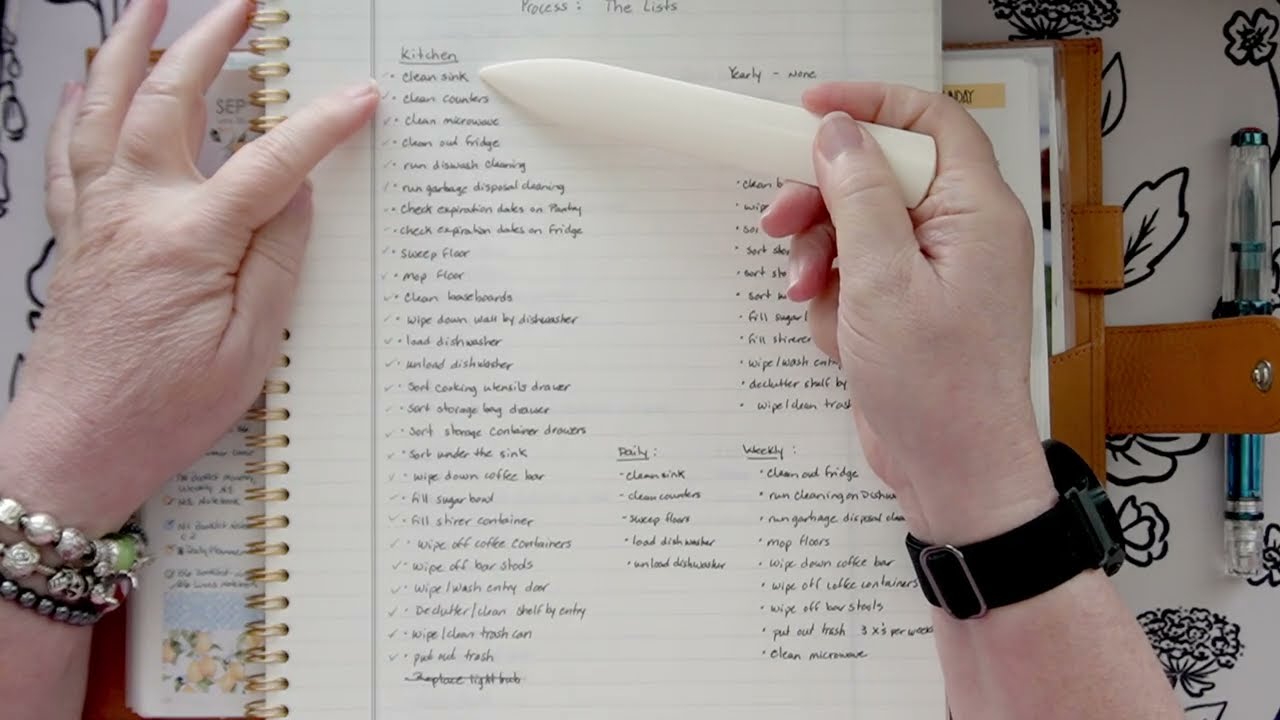 Process: The Lists
Kitchen
• clean sink
• clean counters
• clean microwave
• clean out fridge
• run diswash cleaning
• run garbage disposal cleaning
• check expiration dates on Pantry
• check expiration dates on fridge
• sweep floor
• mop floor
• clean baseboards
• wipe down wall by dishwasher
• load dishwasher
• unload dishwasher
• Sort cooking utensils drawer
• Sort storage bag drawer
• Sort storage container drawers
• Sort under the sink
• wipe down coffee bar
• fill sugar bowl
• fill stirer container
• wipe off coffee containers
• wipe off bar stools
• wipe/wash entry door
• Declutter/clean shelf by entry
• wipe/clean trash can
• put out trash
Replace light bulb
Yearly - None
• clean b
• wipe
• sor
• sort sto
• sort sto
• sort
• fill sugar
• fill stirerer
• wipe/wash entry
• declutter shelf by
• wipe/clean trash
Daily:
• clean sink
• clean counters
• sweep floors
• load dishwasher
• unload dishwasher
Weekly:
• clean out fridge
• run cleaning on Dishwa
• run garbage disposal clea
• mop floors
• wipe down coffee bar
• wipe off coffee containers
• wipe off bar stools
• put out trash 3 x's per week
• clean microwave
SEP
NDAY